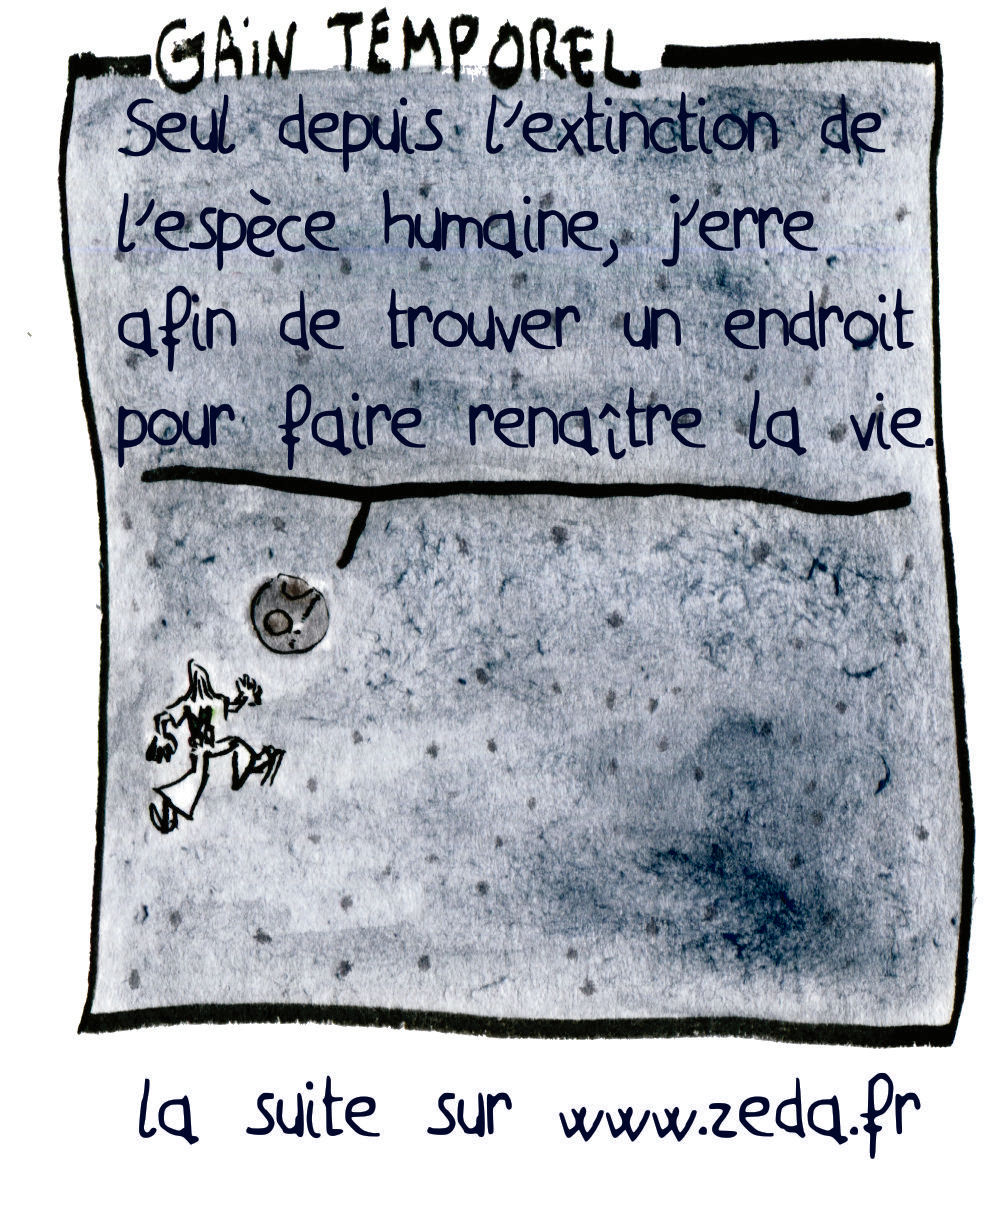 GAiN TEMPOREL
Seul depuis l'extinction de
l'espèce humaine, j'erre
afin de trouver un endroit
pour faire renaître la vie.
la suite sur www.zeda.fr